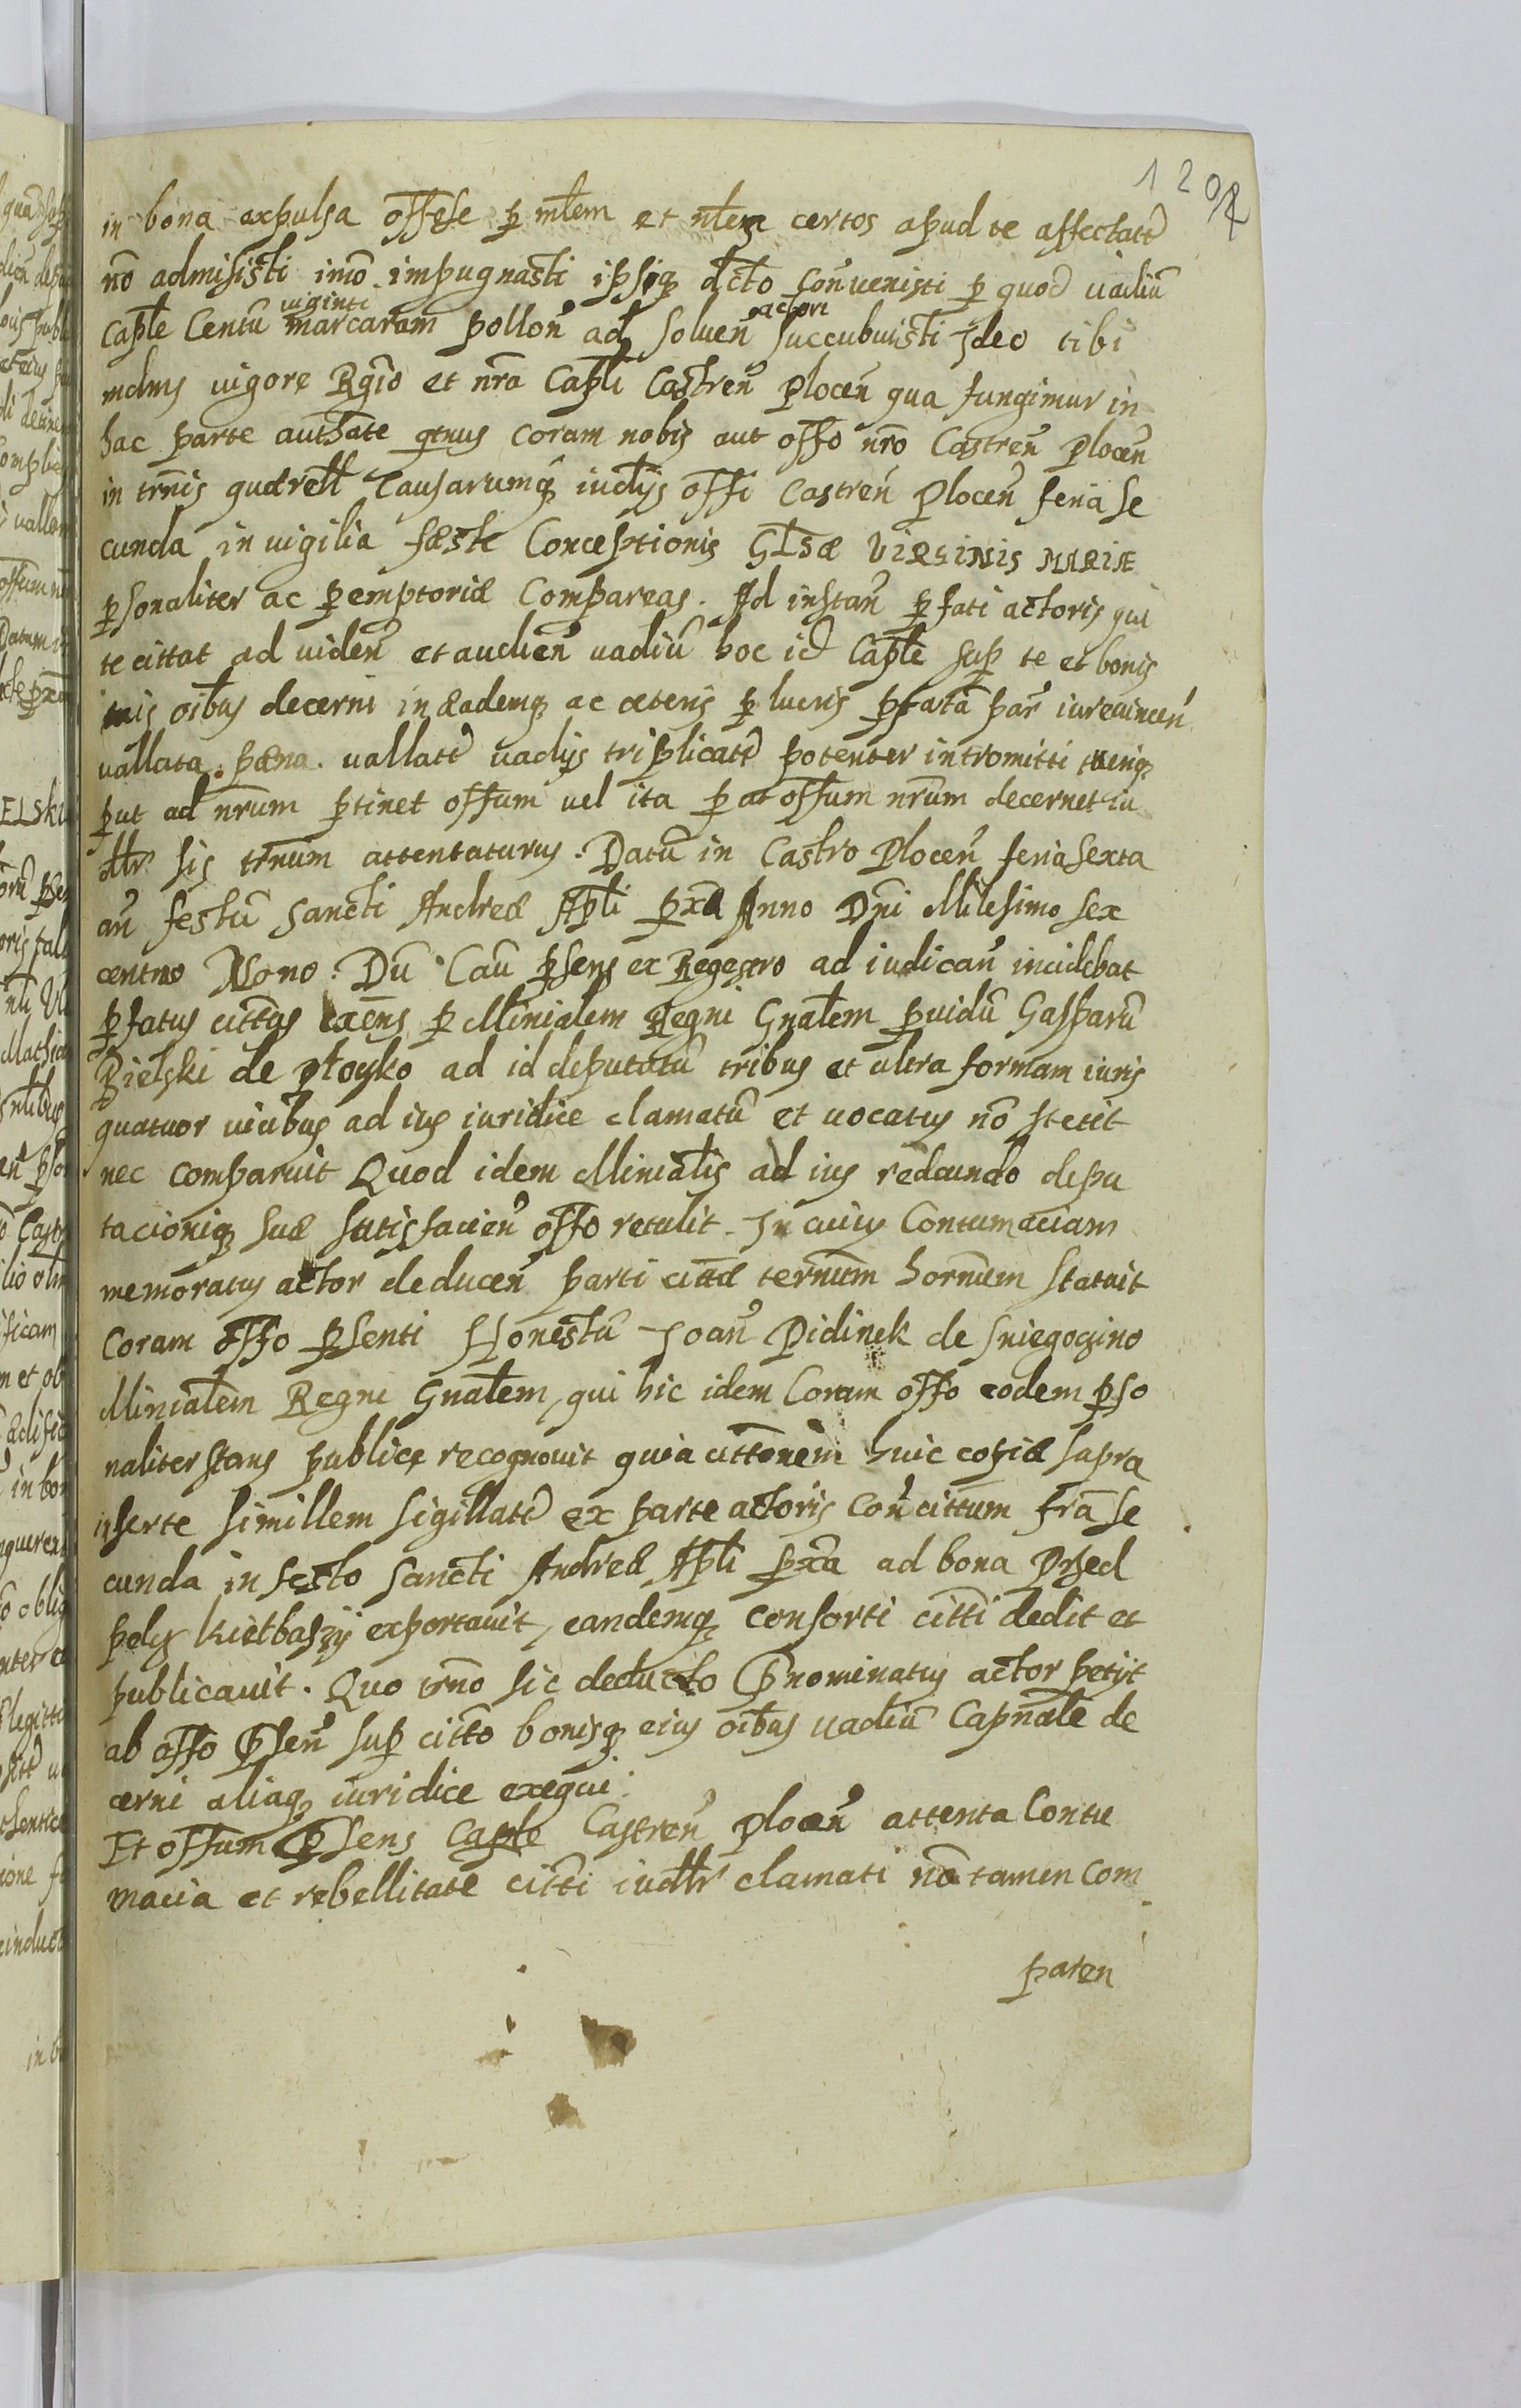 120
in bona expulsa offose p mlem et nlem certos apud te affectate
nō admisisti imō impugnasti ipsiq dcto Conuenisti p quod vadiū
viginti
actori
Caple Centū marcarum pollon ad soluen succubuisti Ideo tibi
mdms uigore Rgio et nra Capli Castren Plocen qua fungimur in
hac parte authate qtnus coram nobis aut offo nro Castren Plocen
in trnis querell Causarumq iudys offi Castren Plocen feria se
cunda in uigilia fæste Conceptionis Glsæ VIRGINIS MARIÆ
psonaliter ac pemptoriæ Compareas. Ad instan pfati actoris qui
te cittat ad uiden et audien uadiū hoc id Caple sup te et bonis
tuis oibus decerni in eademq ac ceteris p lucris pfatā par iureuincen
vallata pæna vallate vadys triplicate potenter intromitti tuenq
put ad nrum ptinet offum uel ita p at offum nrum decernet iu
dlr sis trnum attentaturus. Datū in Castro Plocen feria sexta
an festū Sancti Andreæ Apli pxa Anno Dni Millesimo sex
centmo Nono. Dū Cau psens ex Regestro ad iudican incidebat
pfatus cittas exens p Minialem Regni Gnalem puidū Gasparū
Bielski de Płoyko ad id deputatū tribus et ultra formam iuris
quatuor uicibus ad ius iuridice clamatū et uocatus nō stetit
nec comparuit Quod idem Minialis ad ius redeundo depu
tacioniq suæ satisfacien offo retulit. In cuius Contumaciam
memoratus actor deducen parti cittæ ternum hornum statuit
Coram offo psenti Honestū Joan Didinek de Sniegocino
Minialem Regni Gnalem, qui hic idem Coram offo eodem pso
naliter stans publice recognouit quia cittonem huic copiæ supra
inserte simillem sigillate ex parte actoris Con cittum fra se
cunda in festo Sancti Andreæ Apli pxa ad bona Przed
pely Kiełbaszy exportauit, eandemq consorti citti dedit et
publicauit. Quo trno sic deducto Pnominatus actor petyt
ab offo Psen sup citto bonisq eius oibus uadiū Capnale de
cerni aliaq iuridice exequi.
Et offum Psens Caple Castren Plocen attenta Contu
macia et rebellitate citti iudlr clamati nō tamen com
paren